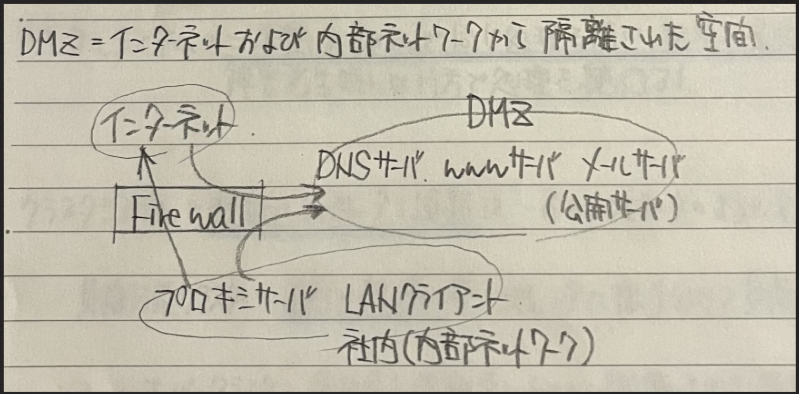 DMZ = インターネットおよび内部ネットワークから隔離された空間.
DMZ
インターネット
DNSサーバ. wwwサーバ メールサーバ
(公開サーバ)
Firewall
プロキシサーバ LANクライアント
社内(内部ネットワーク)